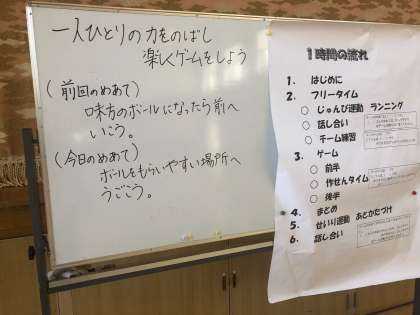 一人ひとりの力をのばし
楽しくゲームをしよう
(前回のめあて)
味方のボールになったら前へ
いこう。
(今日のめあて)
ボールをもらいやすい場所へ
うごこう。
1時間の流れ
1. はじめに
2. フリータイム
○ じゅんび運動 ランニング
○ 話し合い
○ チーム練習
3. ゲーム
○ 前半
○ 作せんタイム
○ 後半
4. まとめ
5. せいり運動 あとかたづけ
6. 話し合い